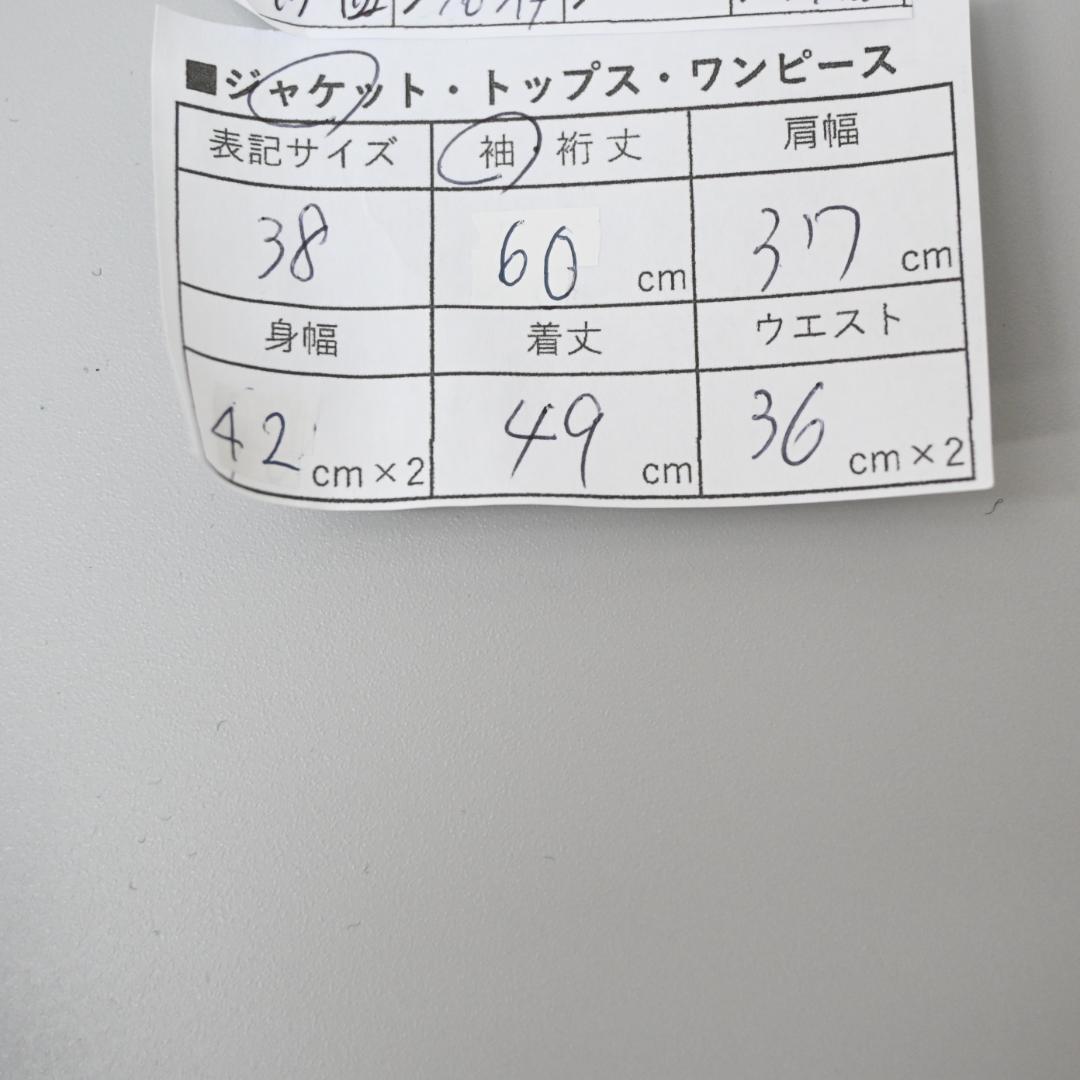 ■ジャケット・トップス・ワンピース
表記サイズ 袖 裄丈 肩幅
38 60 cm 37 cm
身幅 着丈 ウエスト
42 cm×2 49 cm 36 cm×2